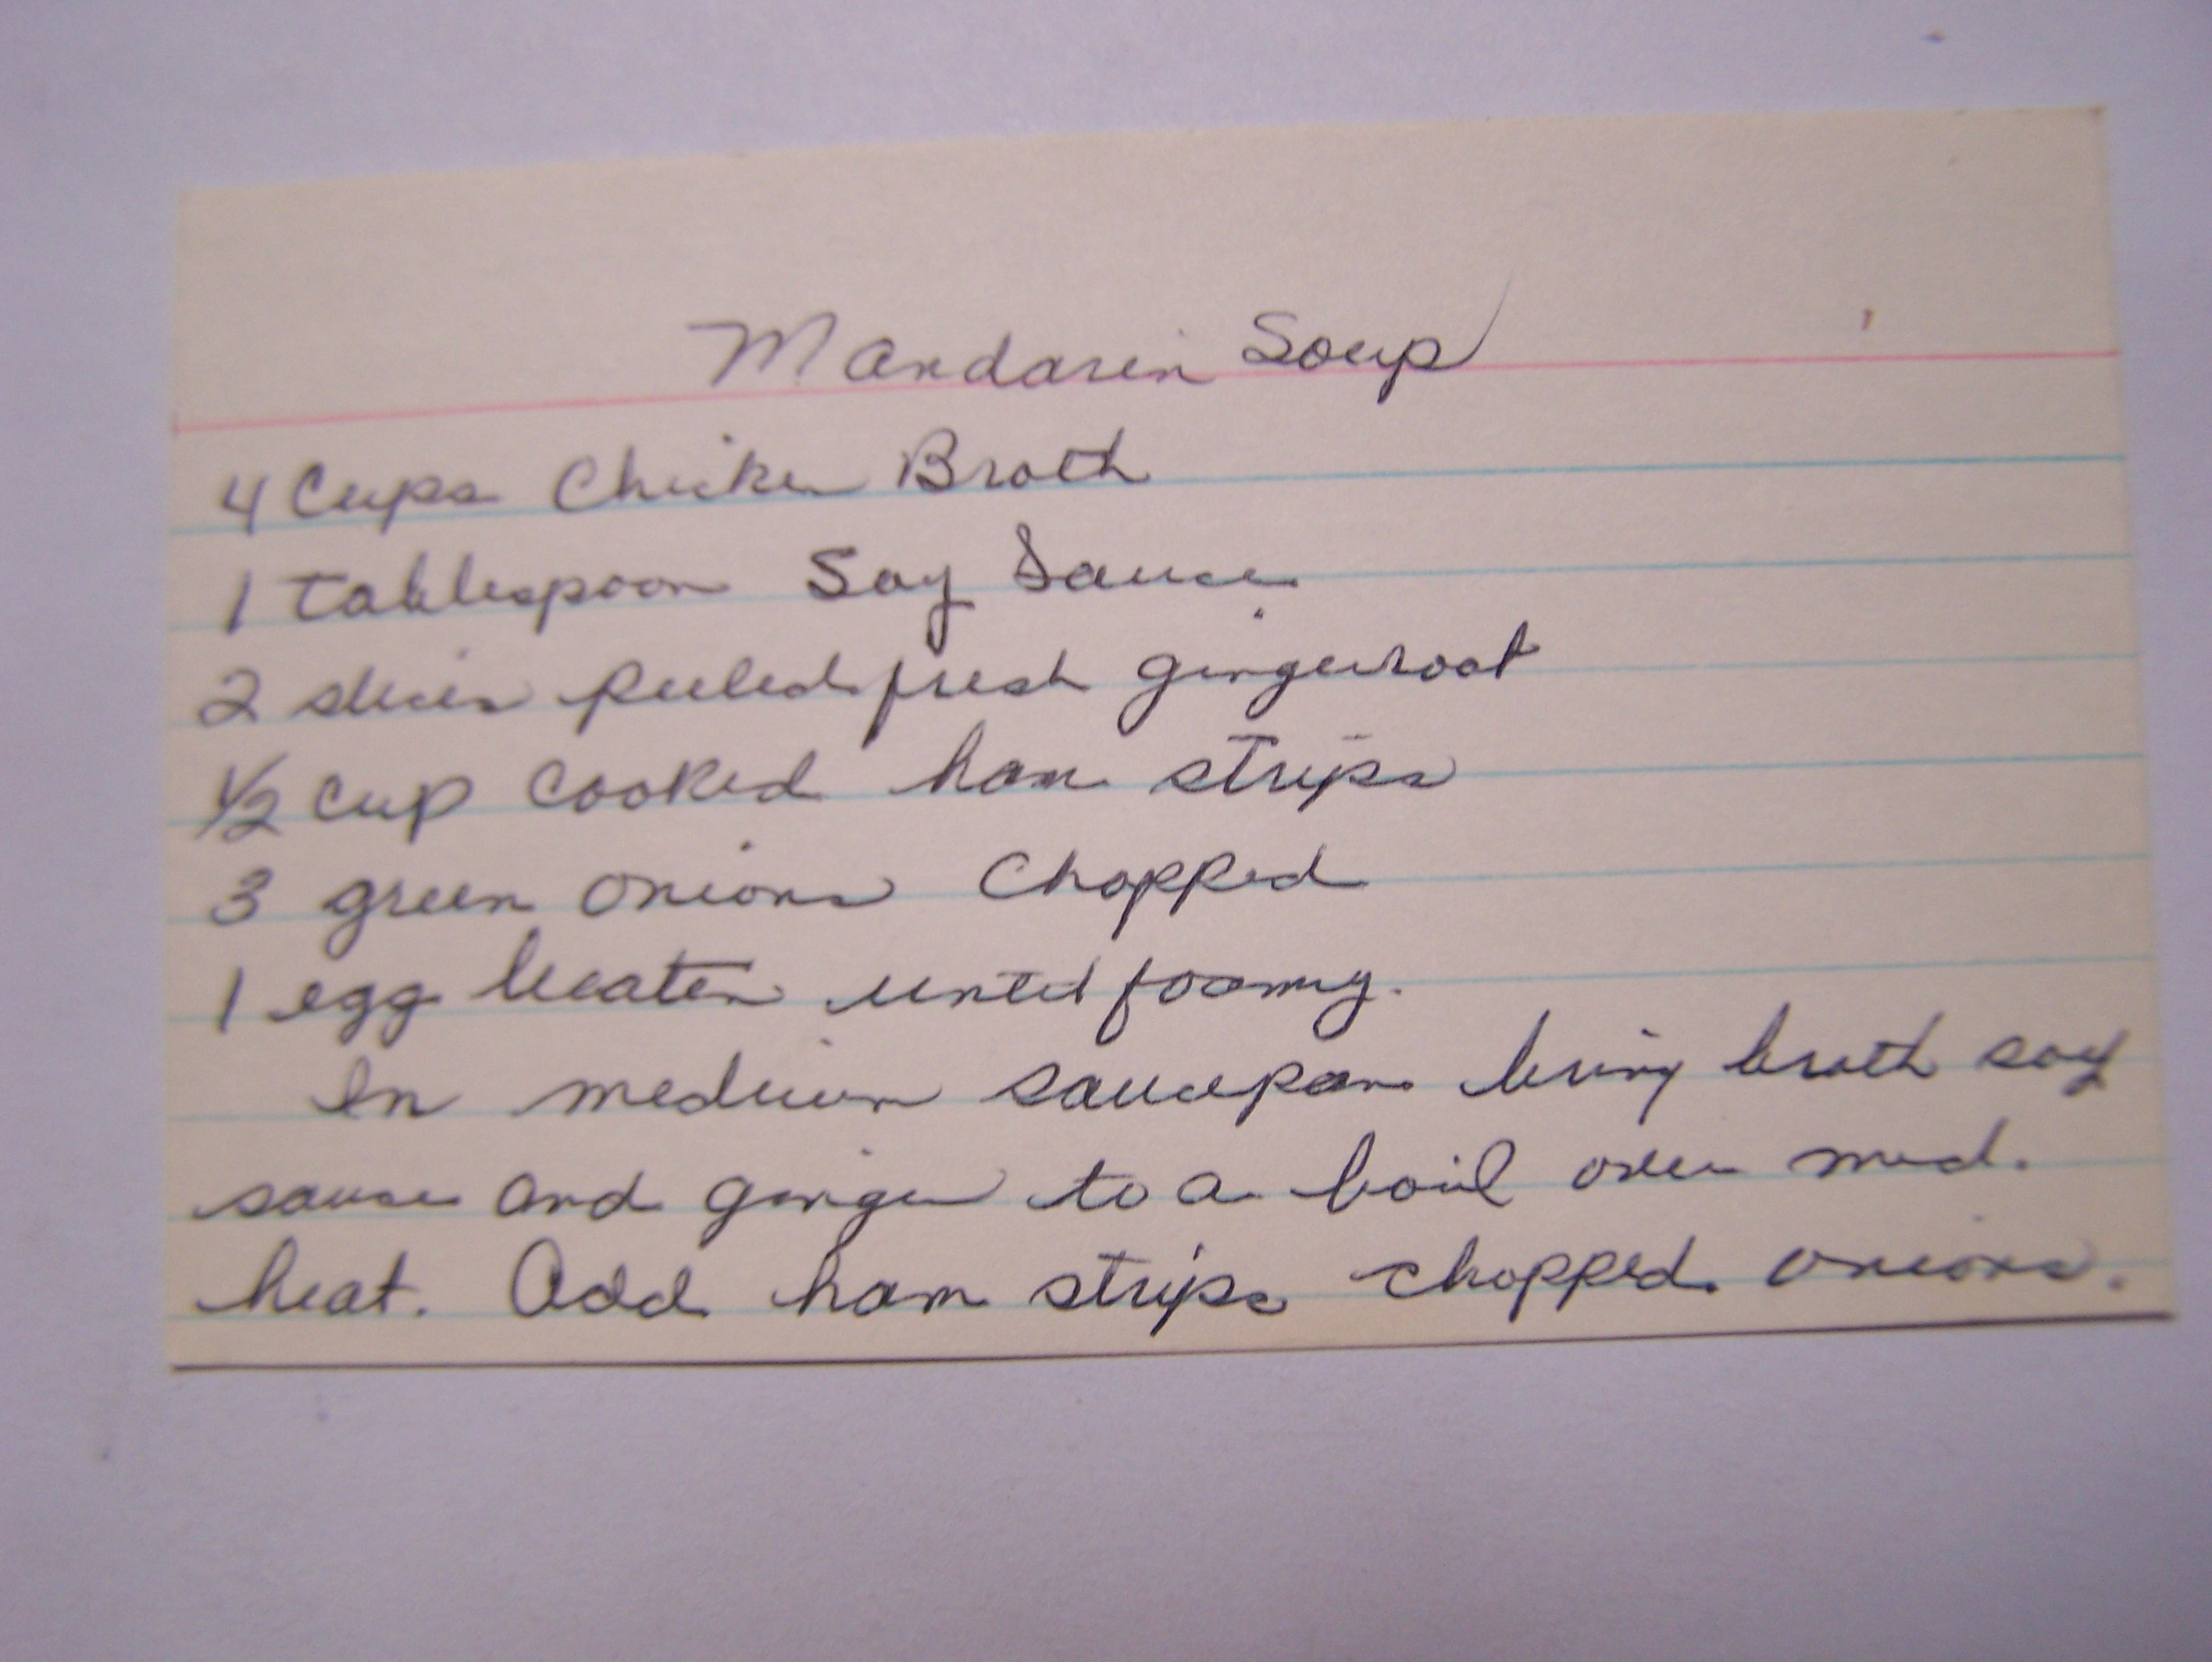 Mandarin Soup
4 Cups Chicken Broth
1 tablespoon Soy Sauce
2 slices peeled fresh gingerroot
1/2 cup cooked ham strips
3 green onions Chopped
1 egg beaten until foamy.
In medium saucepan bring broth soy
sauce and ginger to a boil over med.
heat. Add ham strips chopped onions.